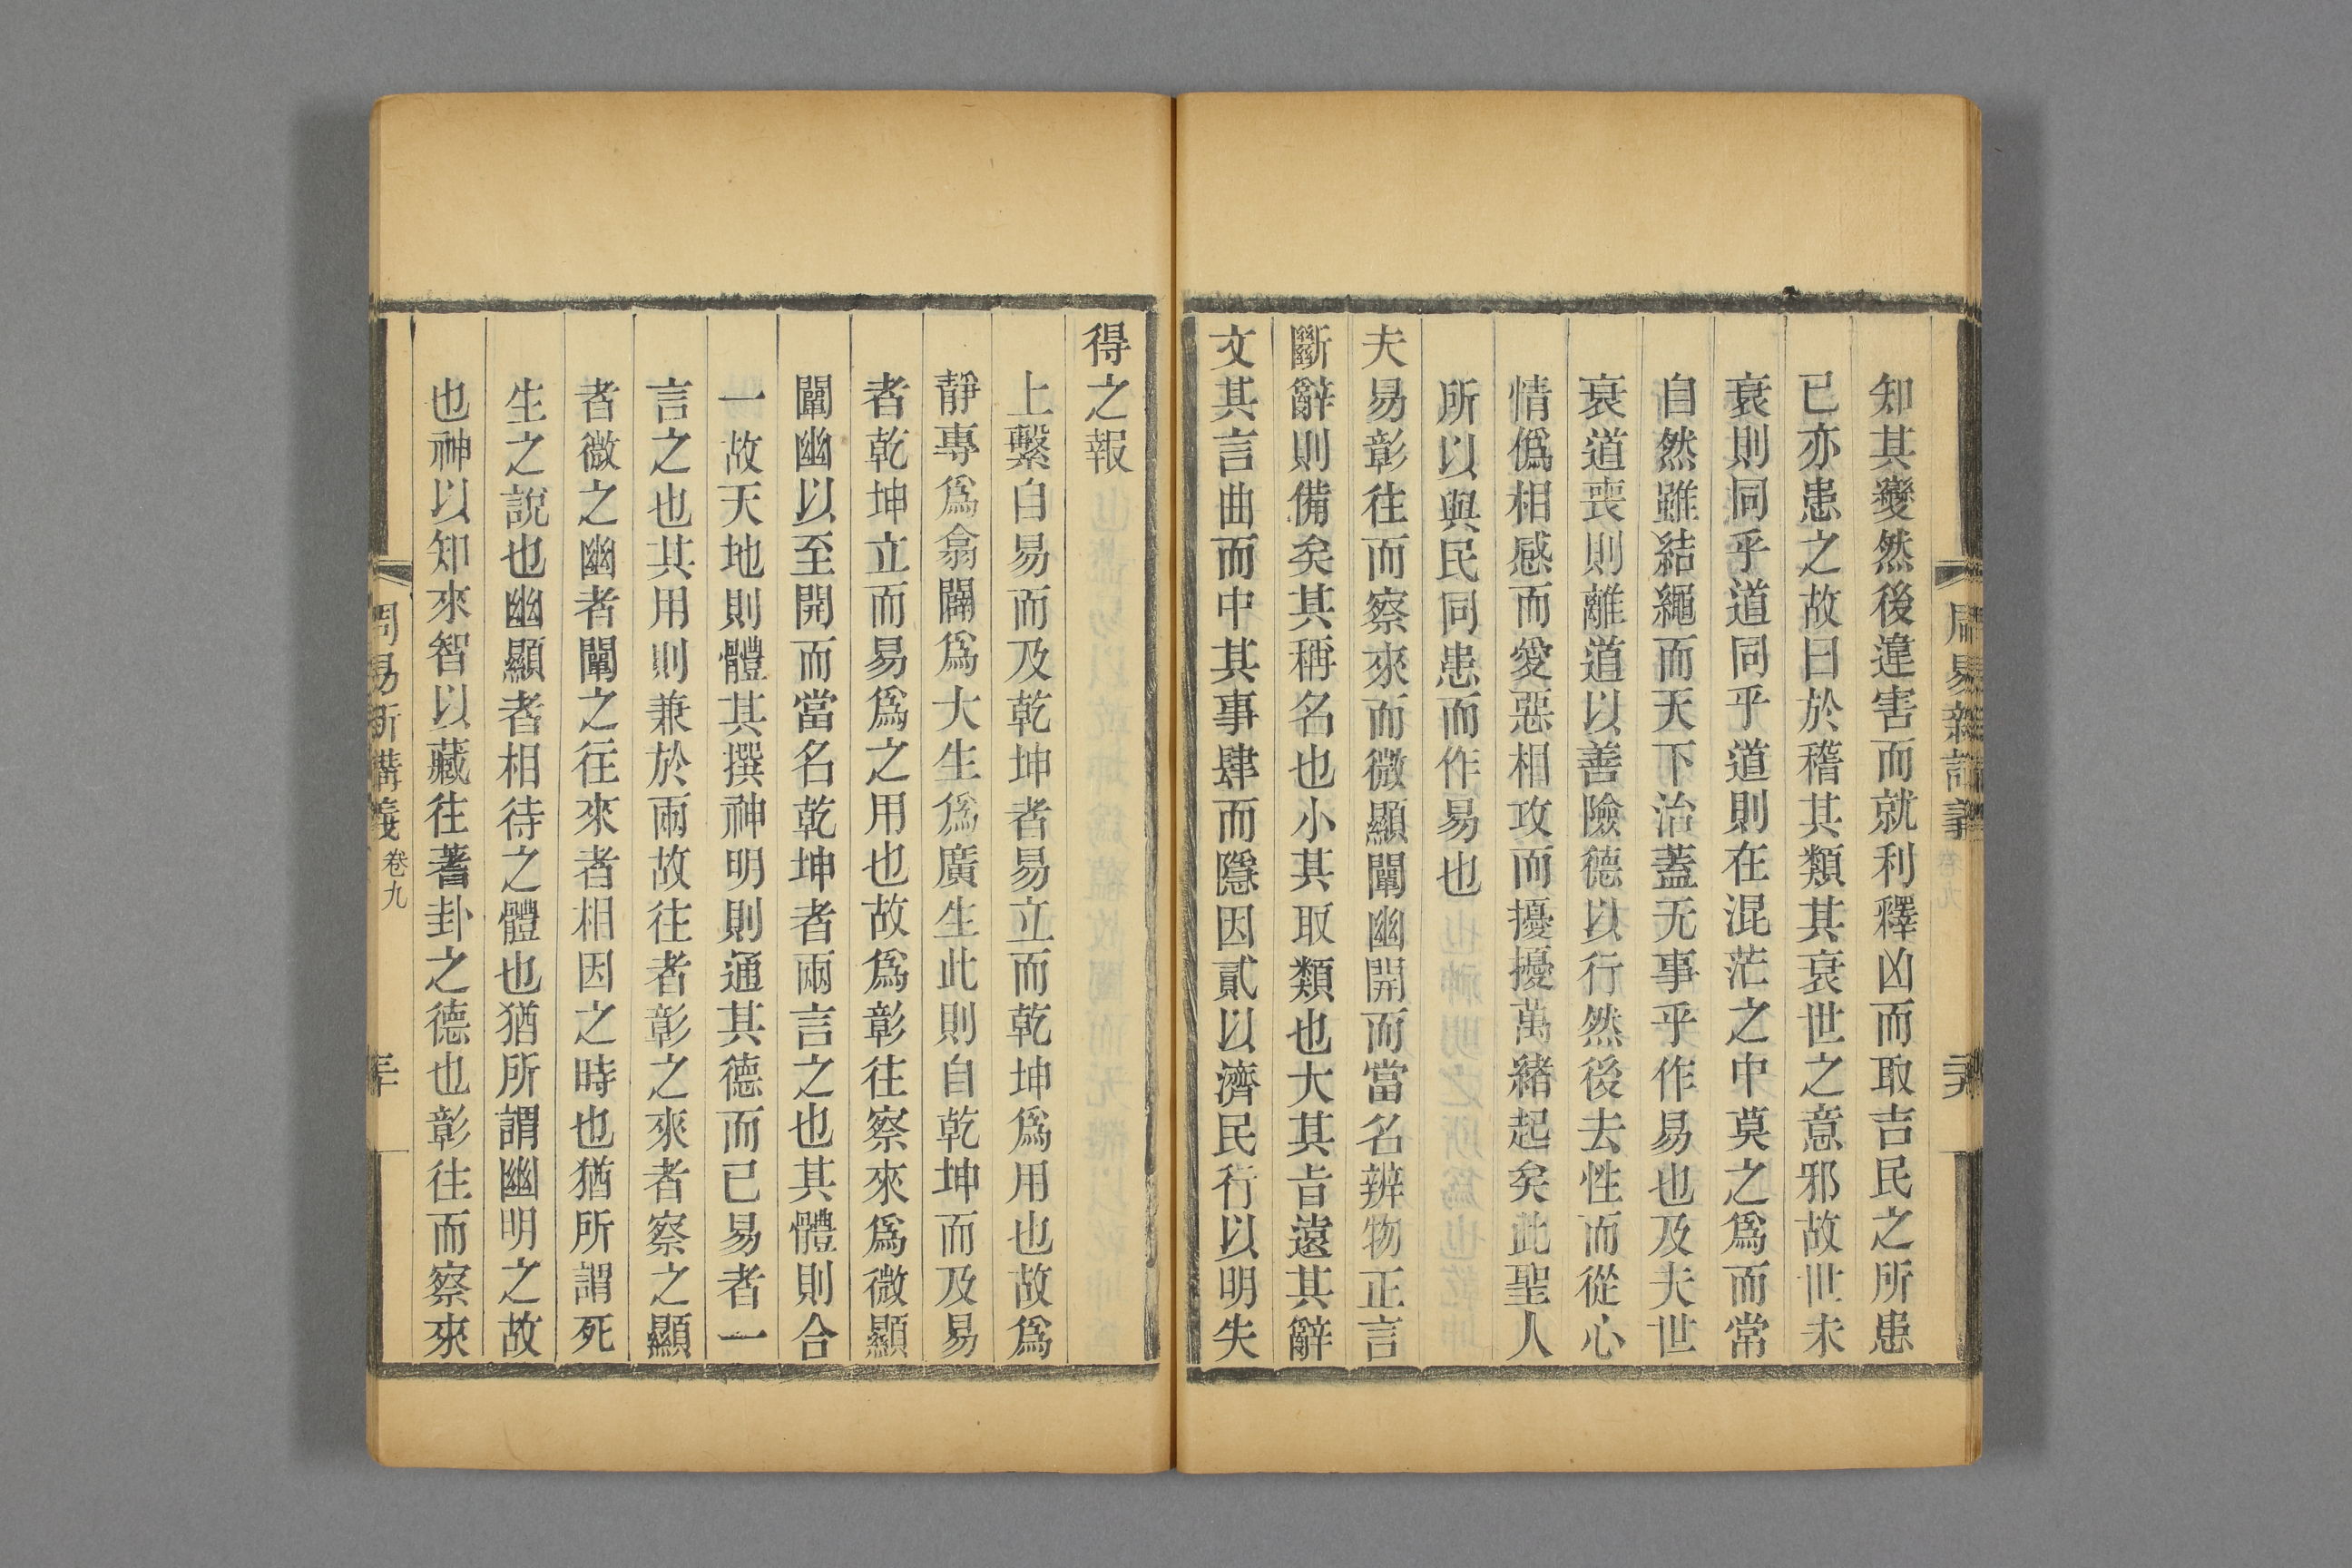 知其變然後違害而就利釋凶而取吉民之所患
已亦患之故曰於稽其類其衰世之意邪故世未
衰則同乎道同乎道則在混茫之中莫之爲而常
自然雖結繩而天下治蓋无事乎作易也及夫世
衰道喪則離道以善險德以行然後去性而從心
情僞相感而愛惡相攻而擾擾萬緒起矣此聖人
所以與民同患而作易也
夫易彰往而察來而微顯闡幽開而當名辨物正言
斷辭則備矣其稱名也小其取類也大其旨遠其辭
文其言曲而中其事肆而隱因貳以濟民行以明失
得之報
上繫自易而及乾坤者易立而乾坤爲用也故爲
靜專爲翕闢爲大生爲廣生此則自乾坤而及易
者乾坤立而易爲之用也故爲彰往察來爲微顯
闡幽以至開而當名乾坤者兩言之也其體則合
一故天地則體其撰神明則通其德而已易者一
言之也其用則兼於兩故往者彰之來者察之顯
者微之幽者闡之往來者相因之時也猶所謂死
生之說也幽顯者相待之體也猶所謂幽明之故
也神以知來智以藏往蓍卦之德也彰往而察來
周易新講義 卷九